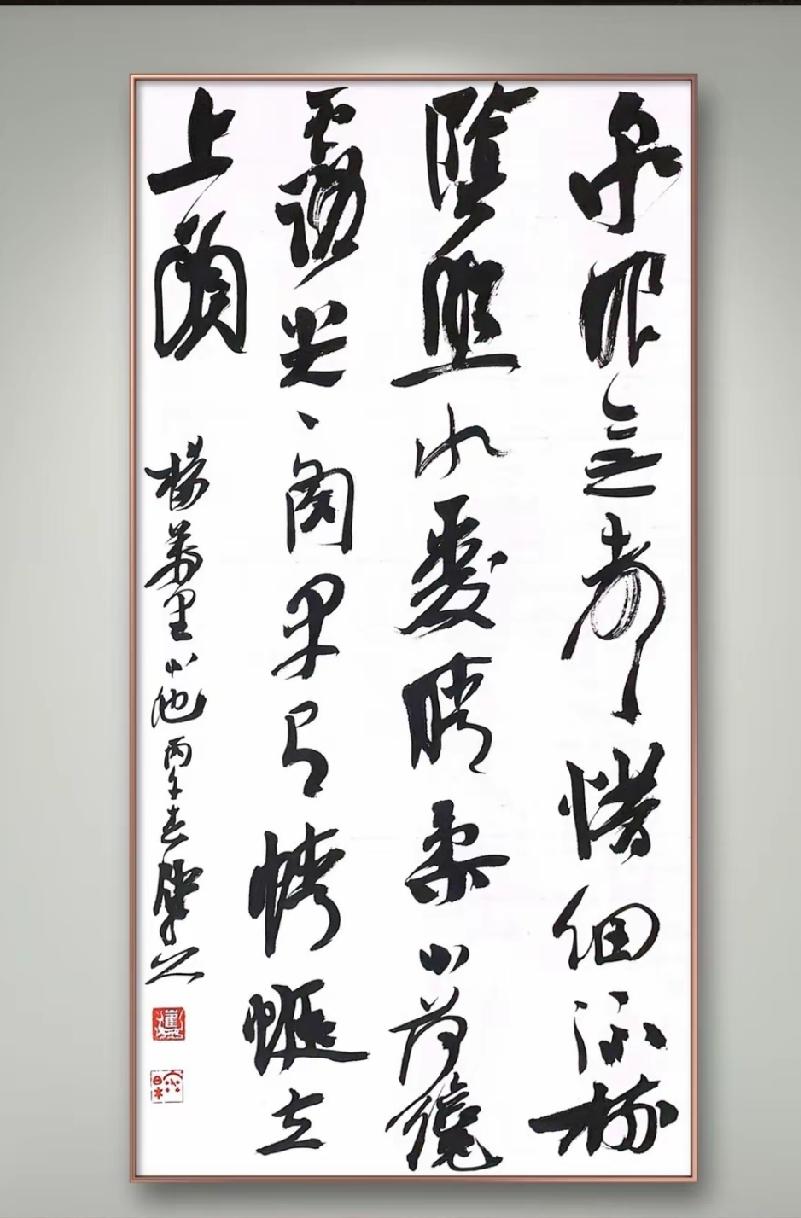 泉眼無聲惜細流樹
陰照水愛晴柔小荷纔
露尖、角早有蜻蜓立
上頭
楊萬里小池丙午春